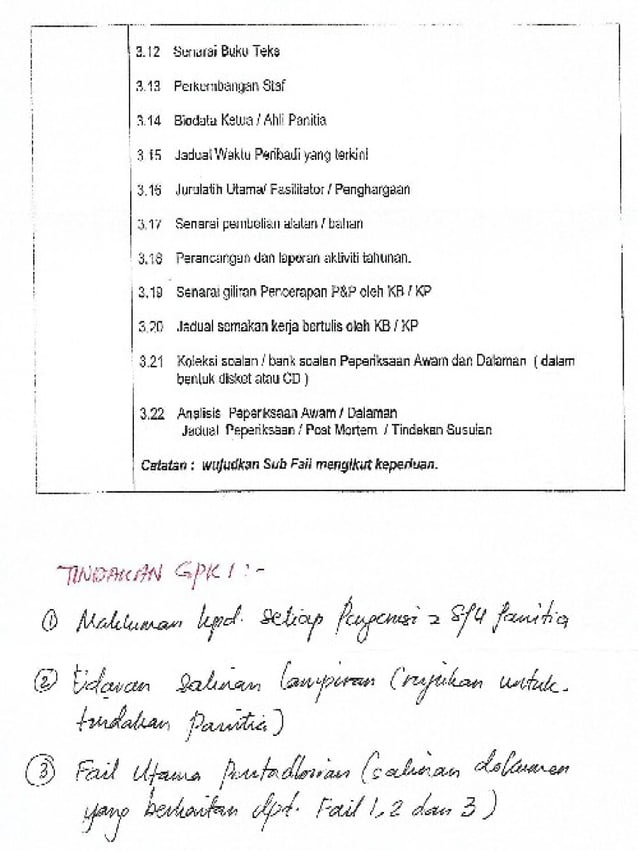 3.12 Senarai Buku Teks
3.13 Perkembangan Staf
3.14 Biodata Ketua / Ahli Panitia
3.15 Jadual Waktu Peribadi yang terkini
3.16 Jurulatih Utama/ Fasilitator / Penghargaan
3.17 Senarai pembelian alatan / bahan
3.18 Perancangan dan laporan aktiviti tahunan.
3.19 Senarai giliran Pencerapan P&P oleh KB / KP
3.20 Jadual semakan kerja bertulis oleh KB / KP
3.21 Koleksi soalan / bank soalan Peperiksaan Awam dan Dalaman ( dalam
bentuk disket atau CD )
3.22 Analisis Peperiksaan Awam / Dalaman
Jadual Peperiksaan / Post Mortem / Tindakan Susulan
Catatan : wujudkan Sub Fail mengikut keperluan.
TINDAKAN GPK 1 :-
① Makluman kpd. setiap Pengerusi & S/U Panitia
② Edaran salinan lampiran (rujukan untuk
tindakan Panitia)
③ Fail Utama Pentadbiran (salinan dokumen
yang berkaitan dpd. Fail 1, 2 dan 3)